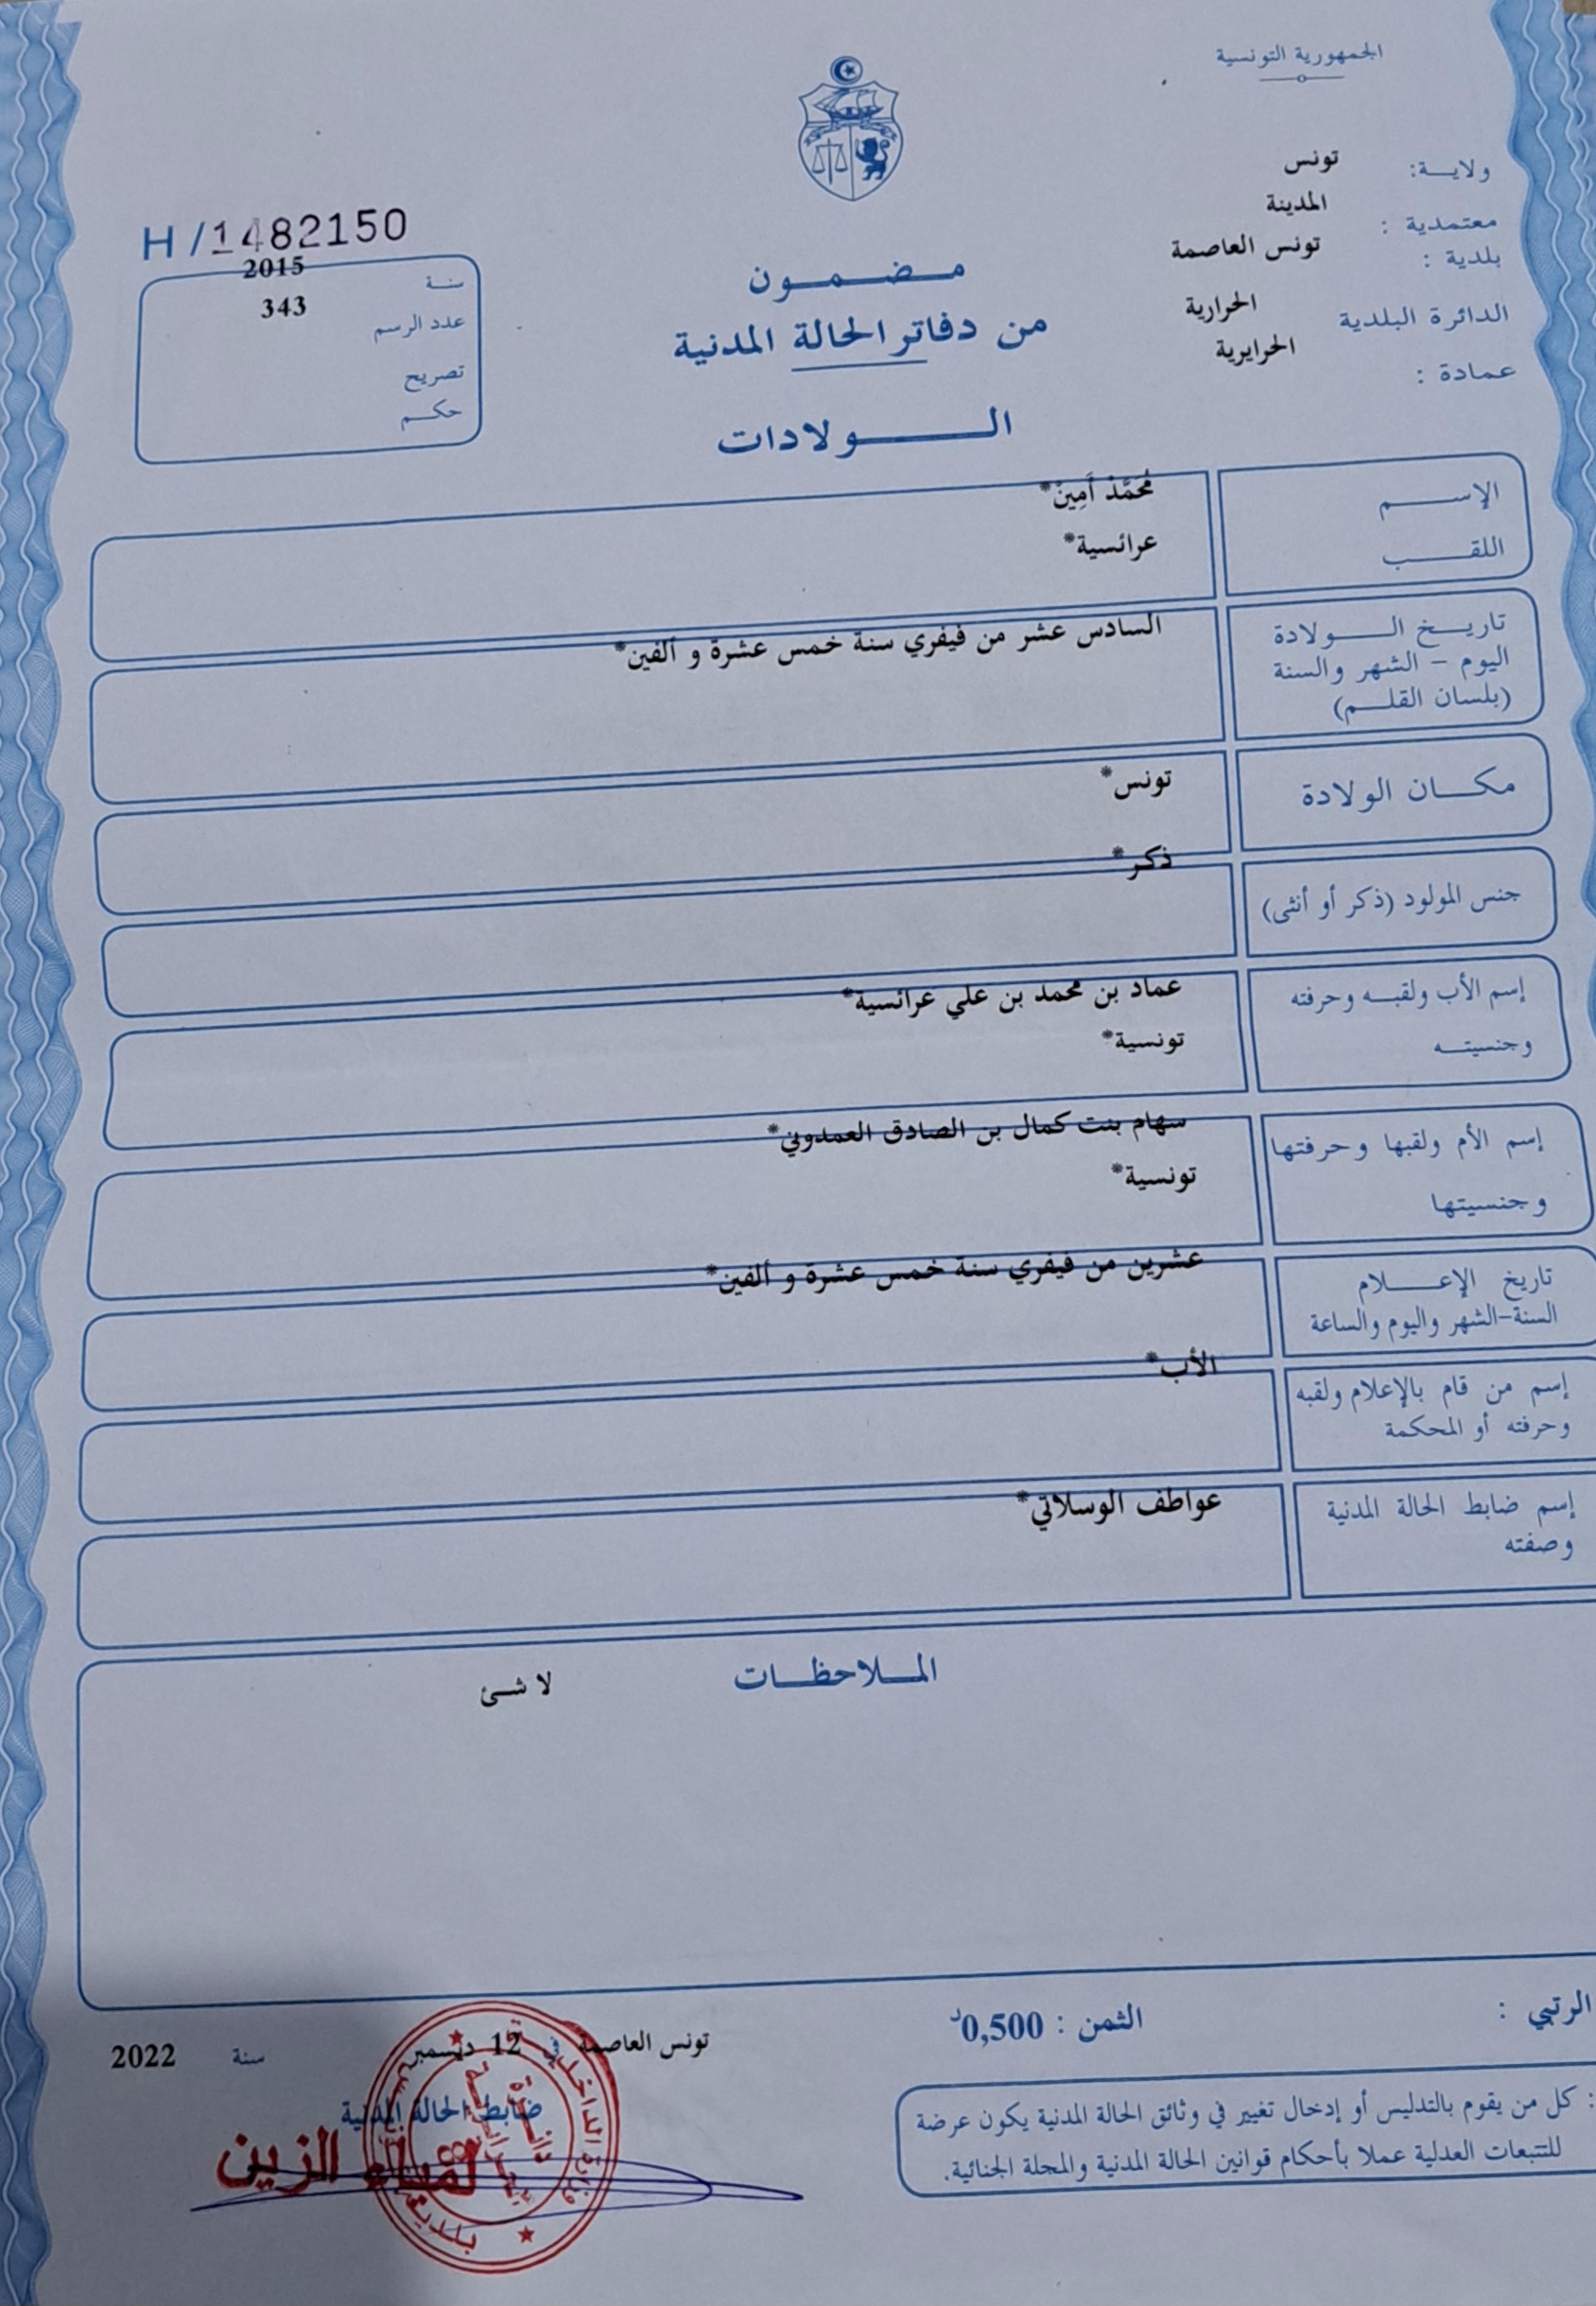 الجمهورية التونسية
ولايــة: تونس
معتمدية : المدينة
بلدية : تونس العاصمة
الدائرة البلدية الحرارية
عمادة : الحرايرية
H / 1482150
سنة 2015
عدد الرسم 343
تصريح
حكم
مضمون
من دفاتر الحالة المدنية
الولادات
الإسم مُحَمَّدْ أَمِينْ*
اللقب عرائسية*
تاريخ الولادة السادس عشر من فيفري سنة خمس عشرة و ألفين*
اليوم - الشهر والسنة
(بلسان القلم)
مكان الولادة تونس*
جنس المولود (ذكر أو أنثى) ذكر*
إسم الأب ولقبه وحرفته عماد بن محمد بن علي عرائسية*
وجنسيته تونسية*
إسم الأم ولقبها وحرفتها سهام بنت كمال بن الصادق العمدوني*
وجنسيتها تونسية*
تاريخ الإعلام عشرين من فيفري سنة خمس عشرة و ألفين*
السنة-الشهر واليوم والساعة
إسم من قام بالإعلام ولقبه الأب*
وحرفته أو المحكمة
إسم ضابط الحالة المدنية عواطف الوسلاتي*
وصفته
الملاحظات
لا شئ
الرتبي :
الثمن : 0,500د
تونس العاصمة في 12 ديسمبر سنة 2022
ضابط الحالة المدنية
الزين
: كل من يقوم بالتدليس أو إدخال تغيير في وثائق الحالة المدنية يكون عرضة
للتتبعات العدلية عملا بأحكام قوانين الحالة المدنية والمجلة الجنائية.